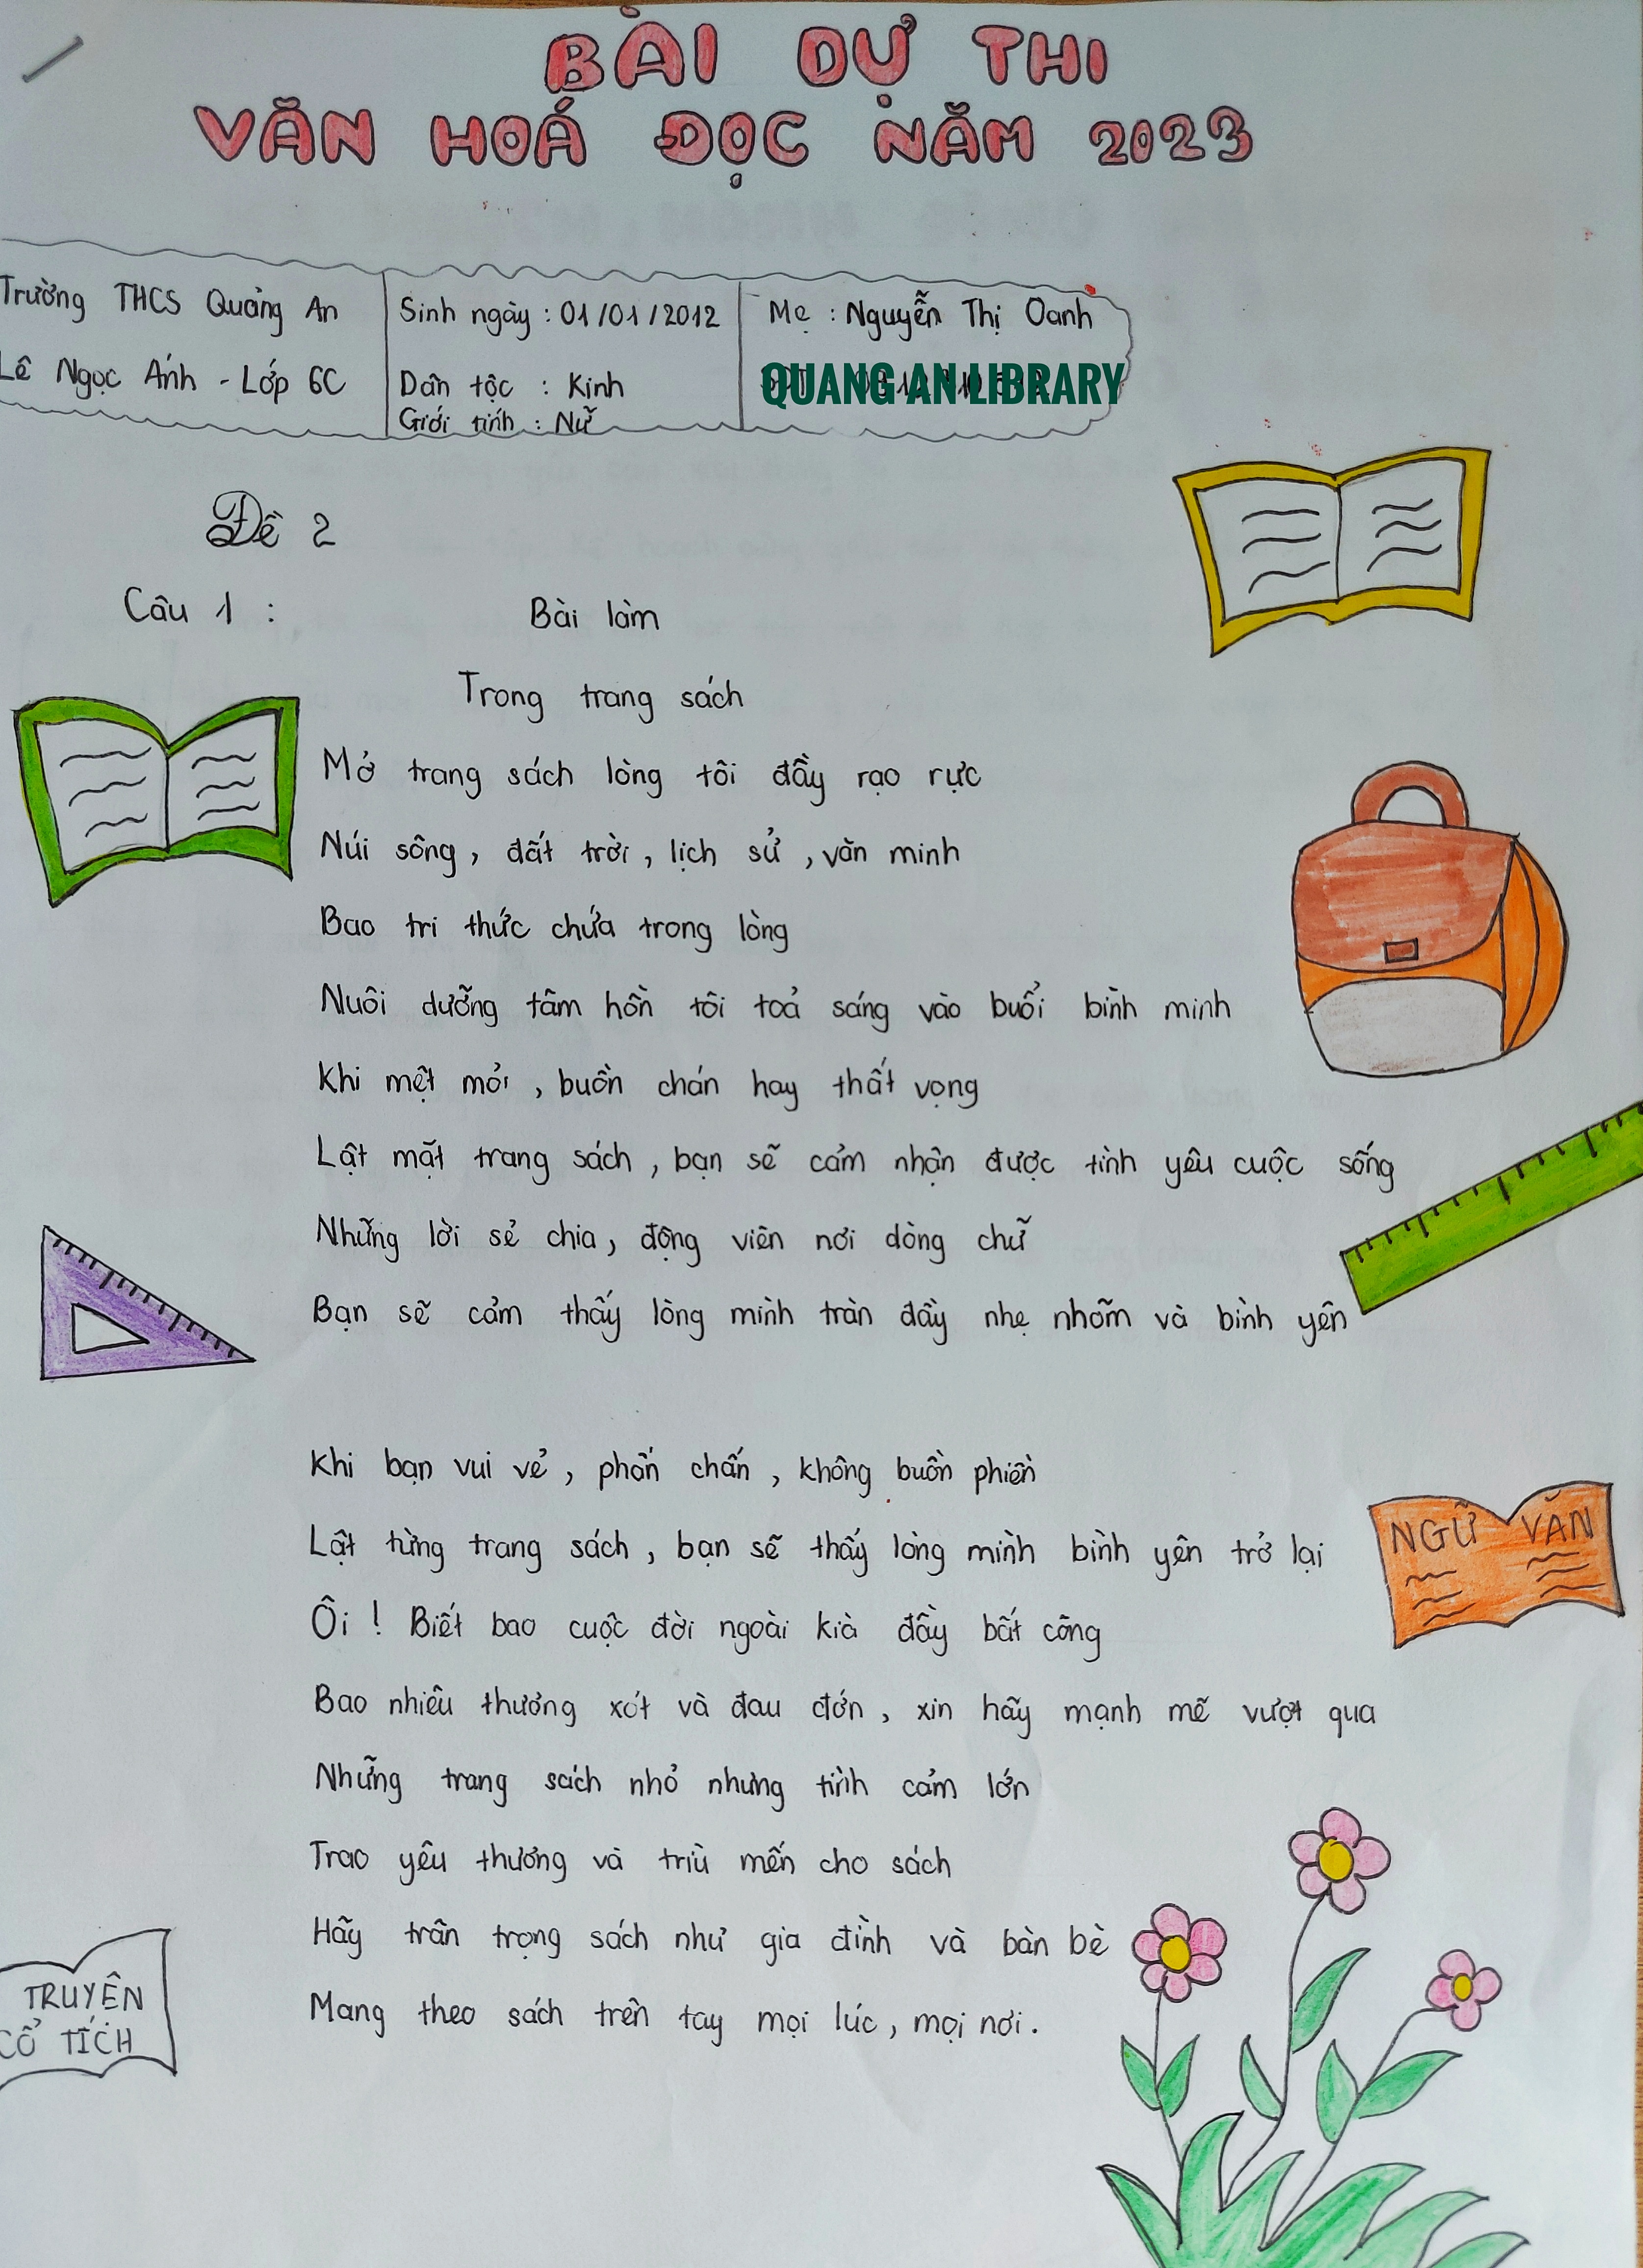 BÀI DỰ THI
VĂN HOÁ ĐỌC NĂM 2023
Trường THCS Quảng An
Lê Ngọc Ánh - Lớp 6C
Sinh ngày : 01/01/2012
Dân tộc : Kinh
Giới tính : Nữ
Mẹ : Nguyễn Thị Oanh
QUANG AN LIBRARY
Đề 2
Câu 1 :
Bài làm
Trong trang sách
Mở trang sách lòng tôi đầy rạo rực
Núi sông, đất trời, lịch sử, văn minh
Bao tri thức chứa trong lòng
Nuôi dưỡng tâm hồn tôi toả sáng vào buổi bình minh
Khi mệt mỏi, buồn chán hay thất vọng
Lật mặt trang sách, bạn sẽ cảm nhận được tình yêu cuộc sống
Những lời sẻ chia, động viên nơi dòng chữ
Bạn sẽ cảm thấy lòng mình tràn đầy nhẹ nhõm và bình yên
Khi bạn vui vẻ, phấn chấn, không buồn phiền
Lật từng trang sách, bạn sẽ thấy lòng mình bình yên trở lại
Ôi ! Biết bao cuộc đời ngoài kià đầy bất công
Bao nhiêu thương xót và đau đớn, xin hãy mạnh mẽ vượt qua
Những trang sách nhỏ nhưng tình cảm lớn
Trao yêu thương và trìu mến cho sách
Hãy trân trọng sách như gia đình và bàn bè
Mang theo sách trên tay mọi lúc, mọi nơi.
NGỮ VĂN
TRUYỆN
CỔ TÍCH